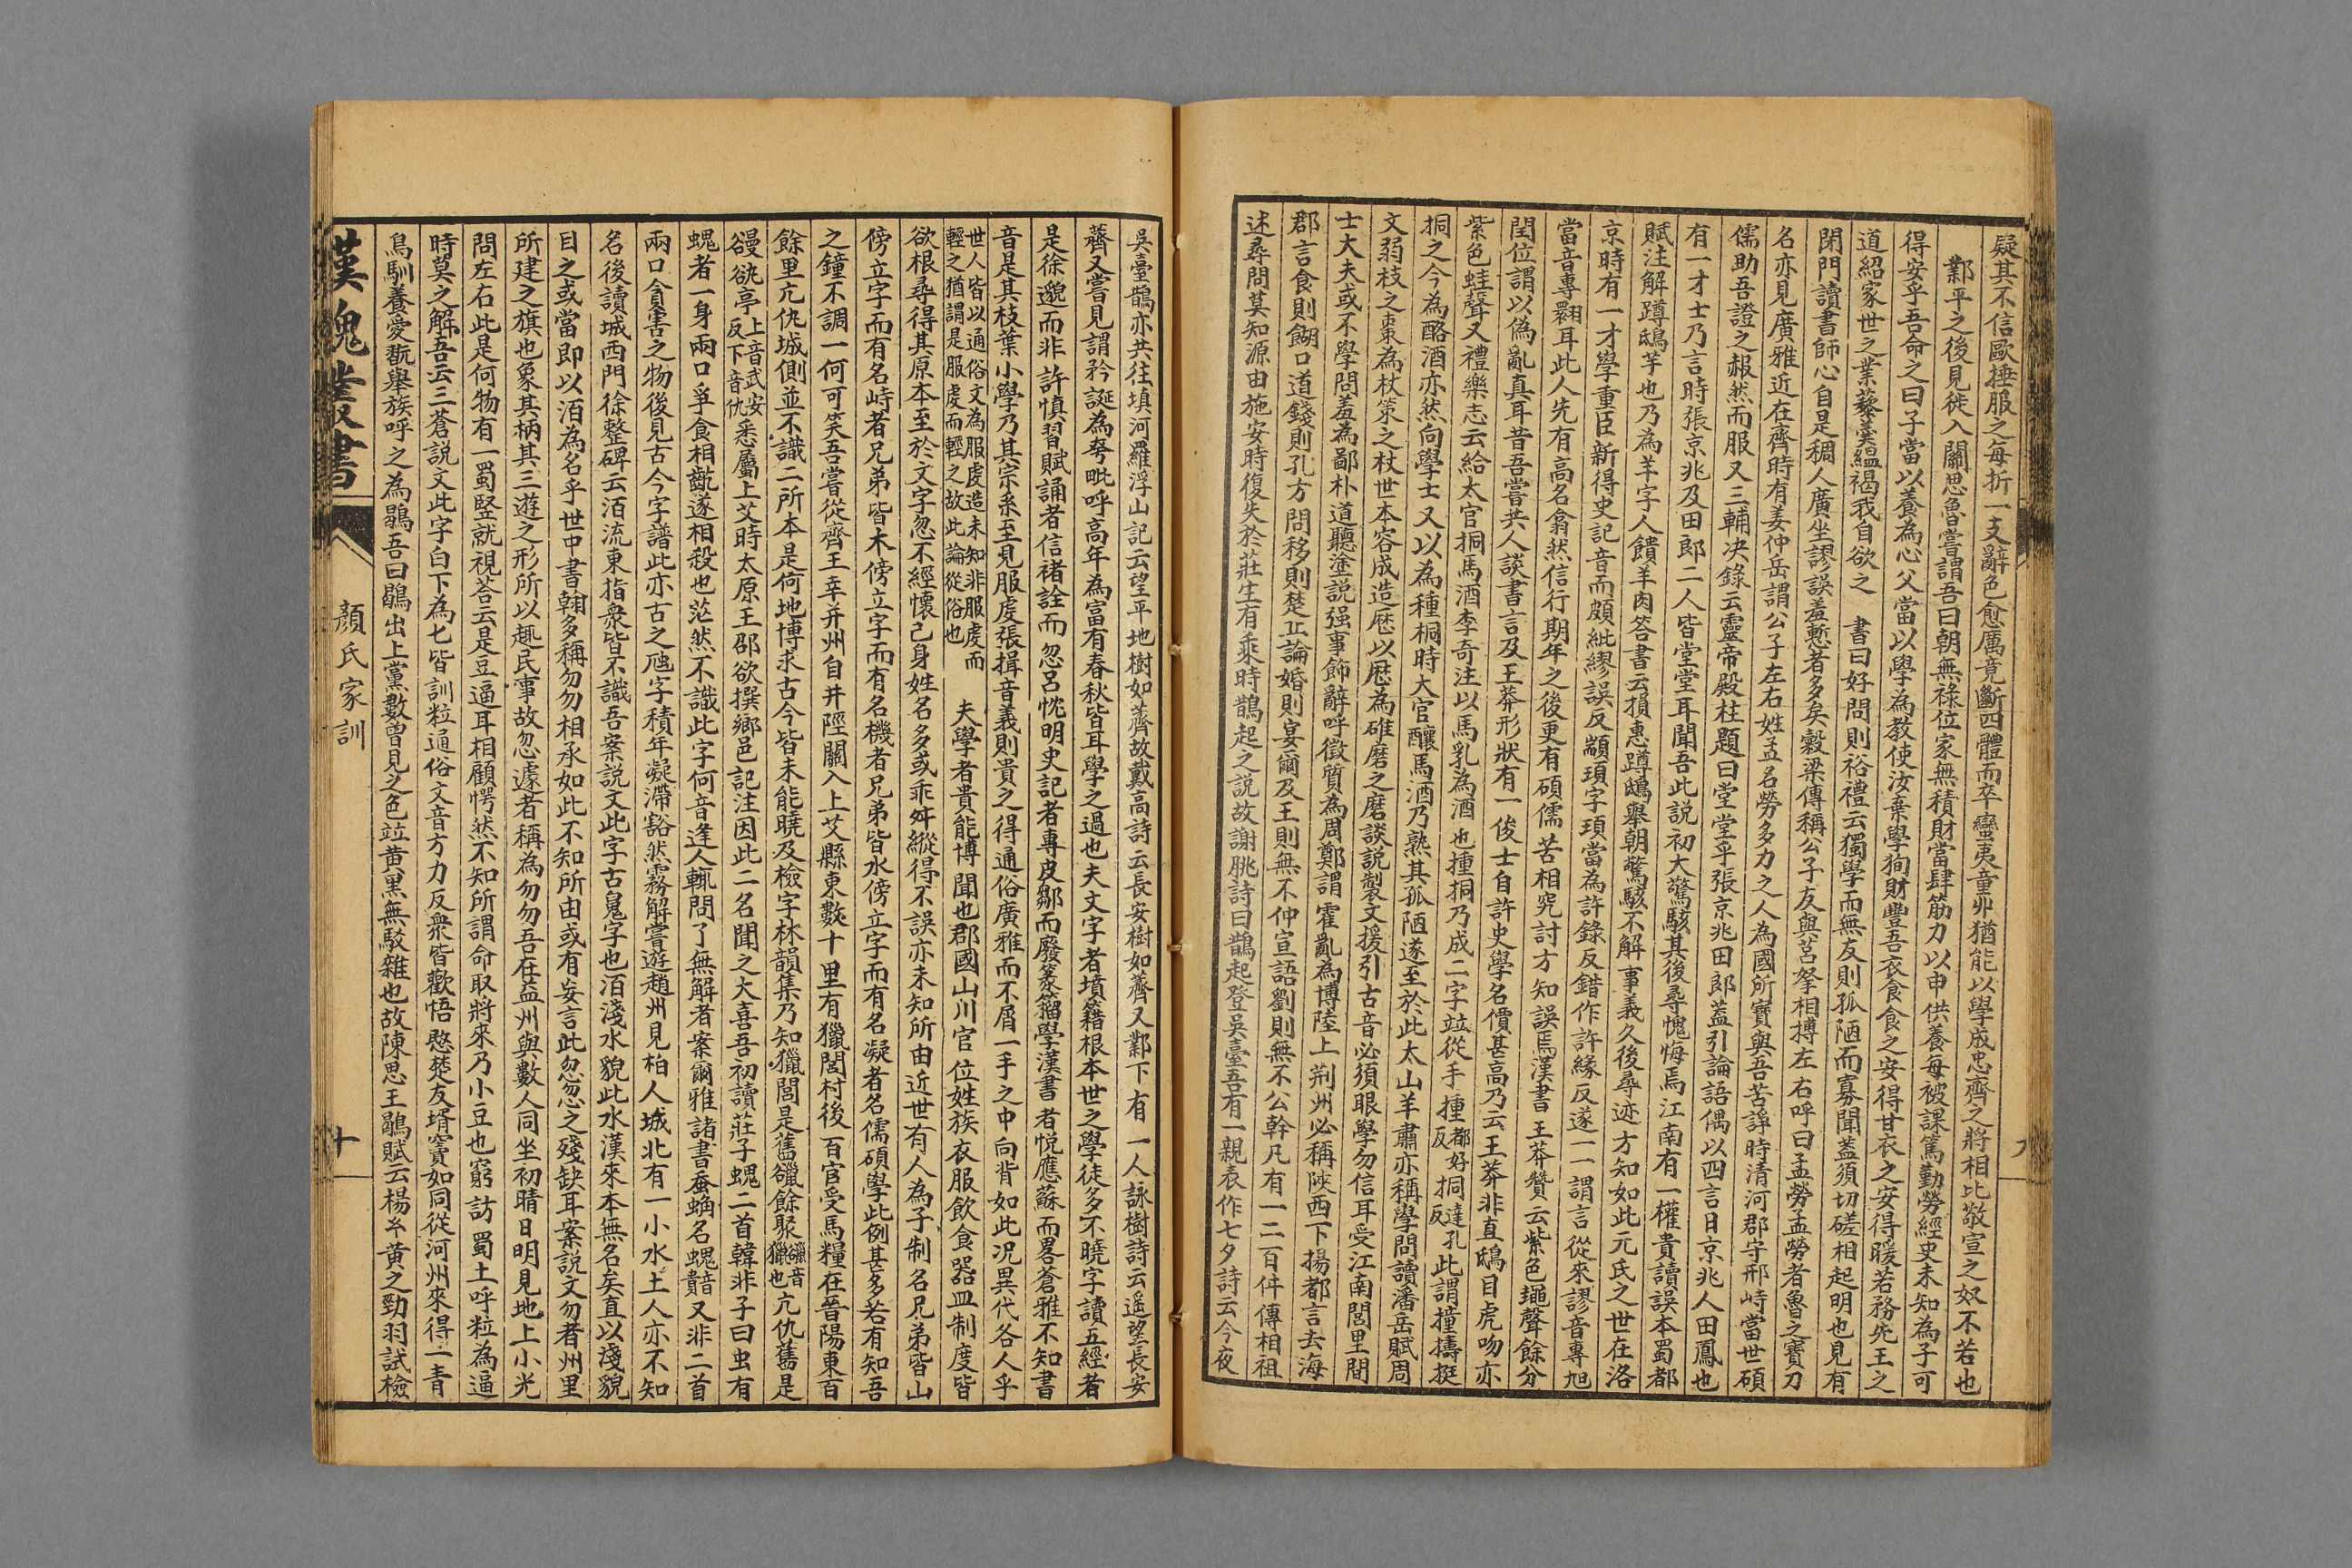 疑其不信歐捶服之每折一支辭色愈厲竟斷四體而卒蠻夷童丱猶能以學成忠齊之將相比敬宣之奴不若也
鄴平之後見徙入關思魯嘗謂吾曰朝無祿位家無積財當肆筋力以申供養每被課篤勤勞經史未知為子可
得安乎吾命之曰子當以養為心父當以學為教使汝棄學狥財豐吾衣食食之安得甘衣之安得暖若務先王之
道紹家世之業藜羹縕褐我自欲之 書曰好問則裕禮云獨學而無友則孤陋而寡聞蓋須切磋相起明也見有
閉門讀書師心自是稠人廣坐謬誤羞慙者多矣穀梁傳稱公子友與莒挐相搏左右呼曰孟勞孟勞者魯之寶刀
名亦見廣雅近在齊時有姜仲岳謂公子左右姓孟名勞多力之人為國所寶與吾苦諍時清河郡守邢峙當世碩
儒助吾證之赧然而服又三輔決錄云靈帝殿柱題曰堂堂乎張京兆田郎蓋引論語偶以四言目京兆人田鳳也
有一才士乃言時張京兆及田郎二人皆堂堂耳聞吾此說初大驚駭其後尋愧悔焉江南有一權貴讀誤本蜀都
賦注解蹲鴟芋也乃為羊字人饋羊肉答書云損惠蹲鴟舉朝驚駭不解事義久後尋迹方知如此元氏之世在洛
京時有一才學重臣新得史記音而頗紕繆誤反顓頊字頊當為許錄反錯作許緣反遂一一謂言從來謬音專旭
當音專翾耳此人先有高名翕然信行期年之後更有碩儒苦相究討方知誤焉漢書王莽贊云紫色蠅聲餘分
閏位謂以偽亂真耳昔吾嘗共人談書言及王莽形狀有一俊士自許史學名價甚高乃云王莽非直鴟目虎吻亦
紫色蛙聲又禮樂志云給太官挏馬酒李奇注以馬乳為酒也揰挏乃成二字竝從手揰都孔反挏達孔反此謂撞擣挺
挏之今為酪酒亦然向學士又以為種桐時太官釀馬酒乃熟其孤陋遂至於此太山羊肅亦稱學問讀潘岳賦周
文弱枝之棗為杖策之杖世本容成造厤以厤為碓磨之磨談說製文援引古昔必須眼學勿信耳受江南閭里間
士大夫或不學問羞為鄙朴道聽塗說强事飾辭呼徵質為周鄭謂霍亂為博陸上荊州必稱陝西下揚都言去海
郡言食則餬口道錢則孔方問移則楚丘論婚則宴爾及王則無不仲宣語劉則無不公幹凡有一二百件傳相祖
述尋問莫知源由施安時復失於莊生有乘時鵲起之說故謝朓詩曰鵲起登吳臺吾有一親表作七夕詩云今夜
吳臺鵲亦共往填河羅浮山記云望平地樹如薺故戴高詩云長安樹如薺又鄴下有一人詠樹詩云遙望長安
薺又嘗見謂矜誕為夸毗呼高年為富有春秋皆耳學之過也夫文字者墳籍根本世之學徒多不曉字讀五經者
是徐邈而非許慎習賦誦者信褚詮而忽呂忱明史記者專皮鄒而廢篆籀學漢書者悅應蘇而畧蒼雅不知書
音是其枝葉小學乃其宗系至見服虔張揖音義則貴之得通俗廣雅而不屑一手之中向背如此況異代各人乎
世人皆以通俗文為服虔造未知非服虔而輕之猶謂是服虔而輕之故此論從俗也 夫學者貴能博聞也郡國山川官位姓族衣服飲食器皿制度皆
欲根尋得其原本至於文字忽不經懷己身姓名多或乖舛縱得不誤亦未知所由近世有人為子制名兄弟皆山
傍立字而有名峙者兄弟皆木傍立字而有名機者兄弟皆水傍立字而有名凝者名儒碩學此例甚多若有知吾
之鐘不調一何可笑吾嘗從齊王幸并州自井陘關入上艾縣東數十里有獵閭村後百官受馬糧在晉陽東百
餘里亢仇城側並不識二所本是何地博求古今皆未能曉及檢字林韻集乃知獵閭是舊㲱餘聚㲱音獵也亢仇舊是
䜱䜪亭上音武安反下音仇悉屬上艾時太原王邵欲撰鄉邑記注因此二名聞之大喜吾初讀莊子螝二首韓非子曰虫有
螝者一身兩口爭食相齕遂相殺也茫然不識此字何音逢人輒問了無解者案爾雅諸書蚕蛹名螝音貴又非二首
兩口貪害之物後見古今字譜此亦古之虺字積年凝滯豁然霧解嘗遊趙州見柏人城北有一小水土人亦不知
名後讀城西門徐整碑云洦流東指衆皆不識吾案說文此字古魄字也洦淺水貌此水漢來本無名矣直以淺貌
目之或當即以洦為名乎世中書翰多稱勿勿相承如此不知所由或有妄言此忽忽之殘缺耳案說文勿者州里
所建之旗也象其柄其三遊之形所以趣民事故忽遽者稱為勿勿吾在益州與數人同坐初晴日明見地上小光
問左右此是何物有一蜀竪就視荅云是豆逼耳相顧愕然不知所謂命取將來乃小豆也窮訪蜀土呼粒為逼
時莫之解吾云三蒼說文此字白下為匕皆訓粒通俗文音方力反衆皆歡悟愍楚友壻竇如同從河州來得一青
鳥馴養愛翫舉族呼之為鶡吾曰鶡出上黨數曾見之色竝黄黑無駁雜也故陳思王鶡賦云楊𤣥黄之勁羽試檢
漢魏叢書
顏氏家訓
十